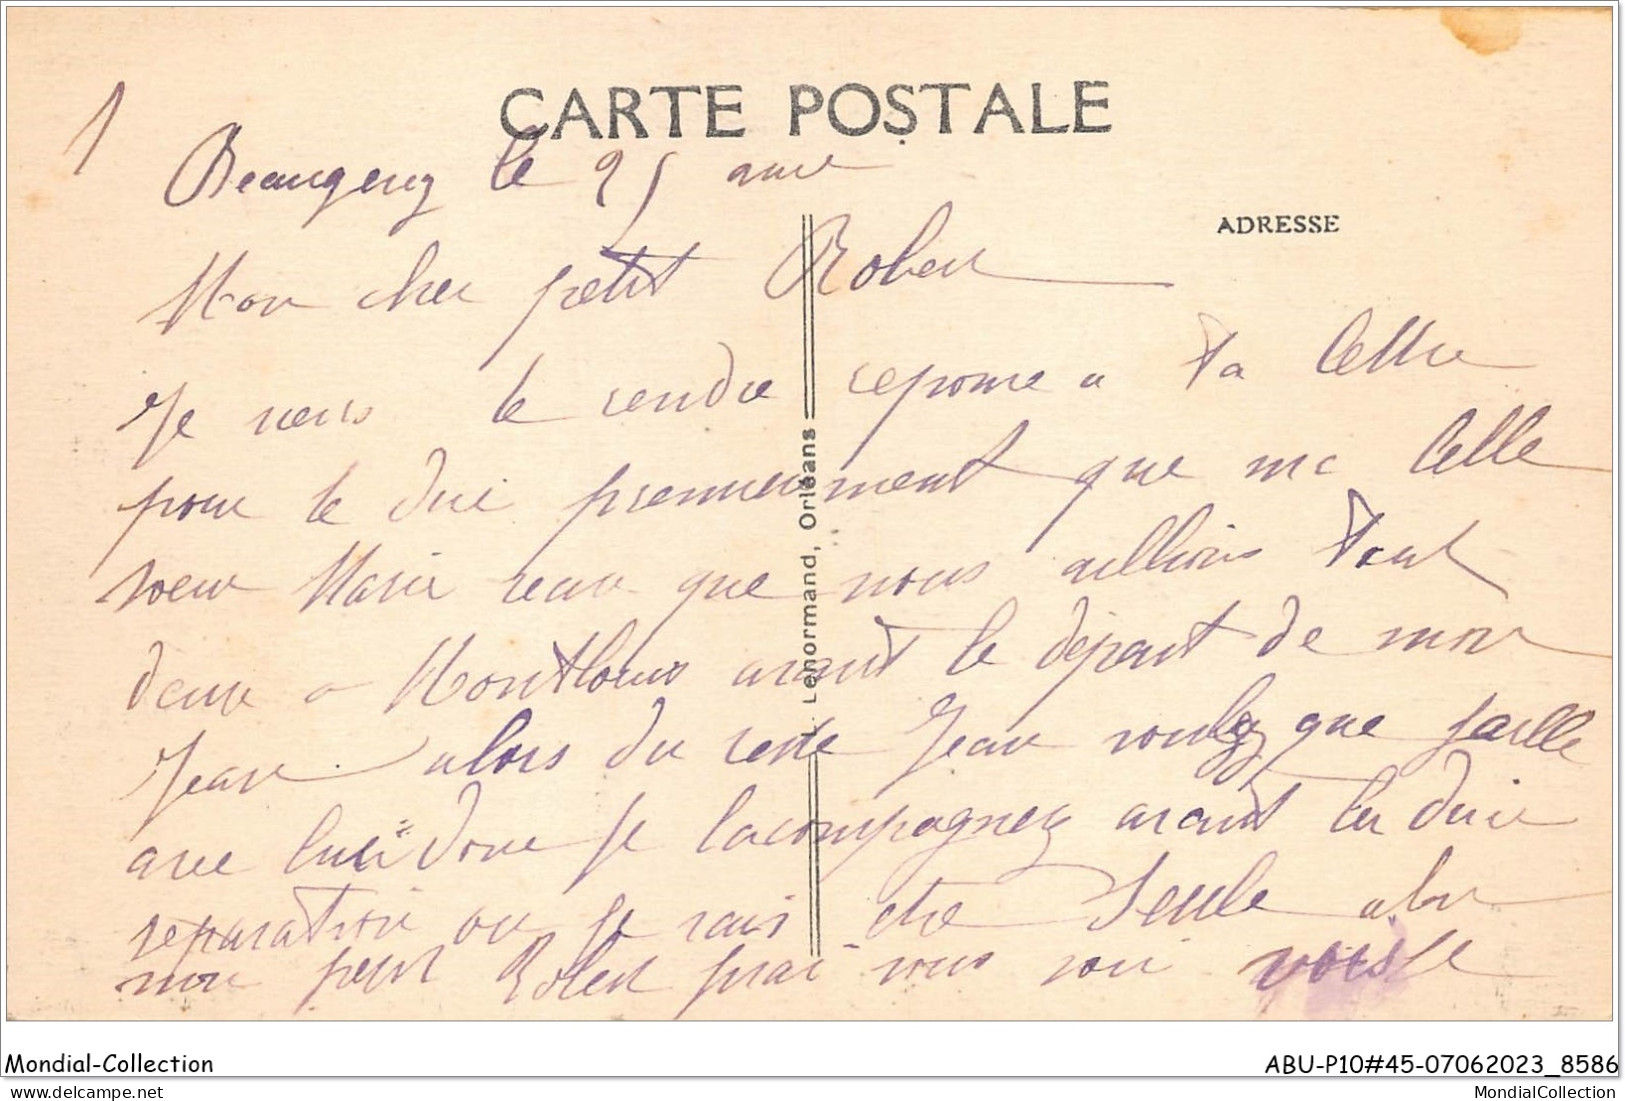 CARTE POSTALE
1
Beaugency le 25
ADRESSE
Mon cher petit Robert
Je viens te rendre reponse a ta lettre
pour te dire premierement que ma belle
soeur Marie veux que nous allions tout
deux a Montlouis avant le départ de mon
Jean alors du reste Jean voulez que j'aille
avec lui donc je l'acompagnez avant la dure
separation ou je vais etre seule
mon petit Robert j'irai vous voir
L. Lenormand, Orléans
Mondial-Collection
ABU-P10#45-07062023_8586
delcampe.net
MondialCollection